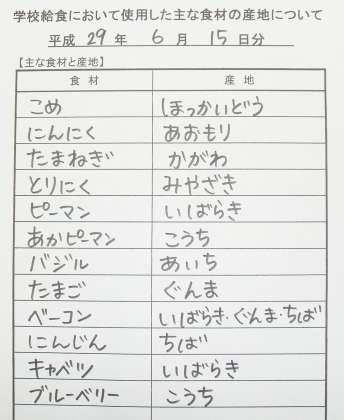 学校給食において使用した主な食材の産地について
平成 29 年 6 月 15 日分
【主な食材と産地】
食材 産地
こめ しほっかいどう
にんにく あおもり
たまねぎ かがわ
とりにく みやざき
ピーマン いばらき
あかピーマン こうち
バジル あいち
たまご ぐんま
ベーコン いばらき・ぐんま・ちば
にんじん ちば
キャベツ いばらき
ブルーベリー こうち